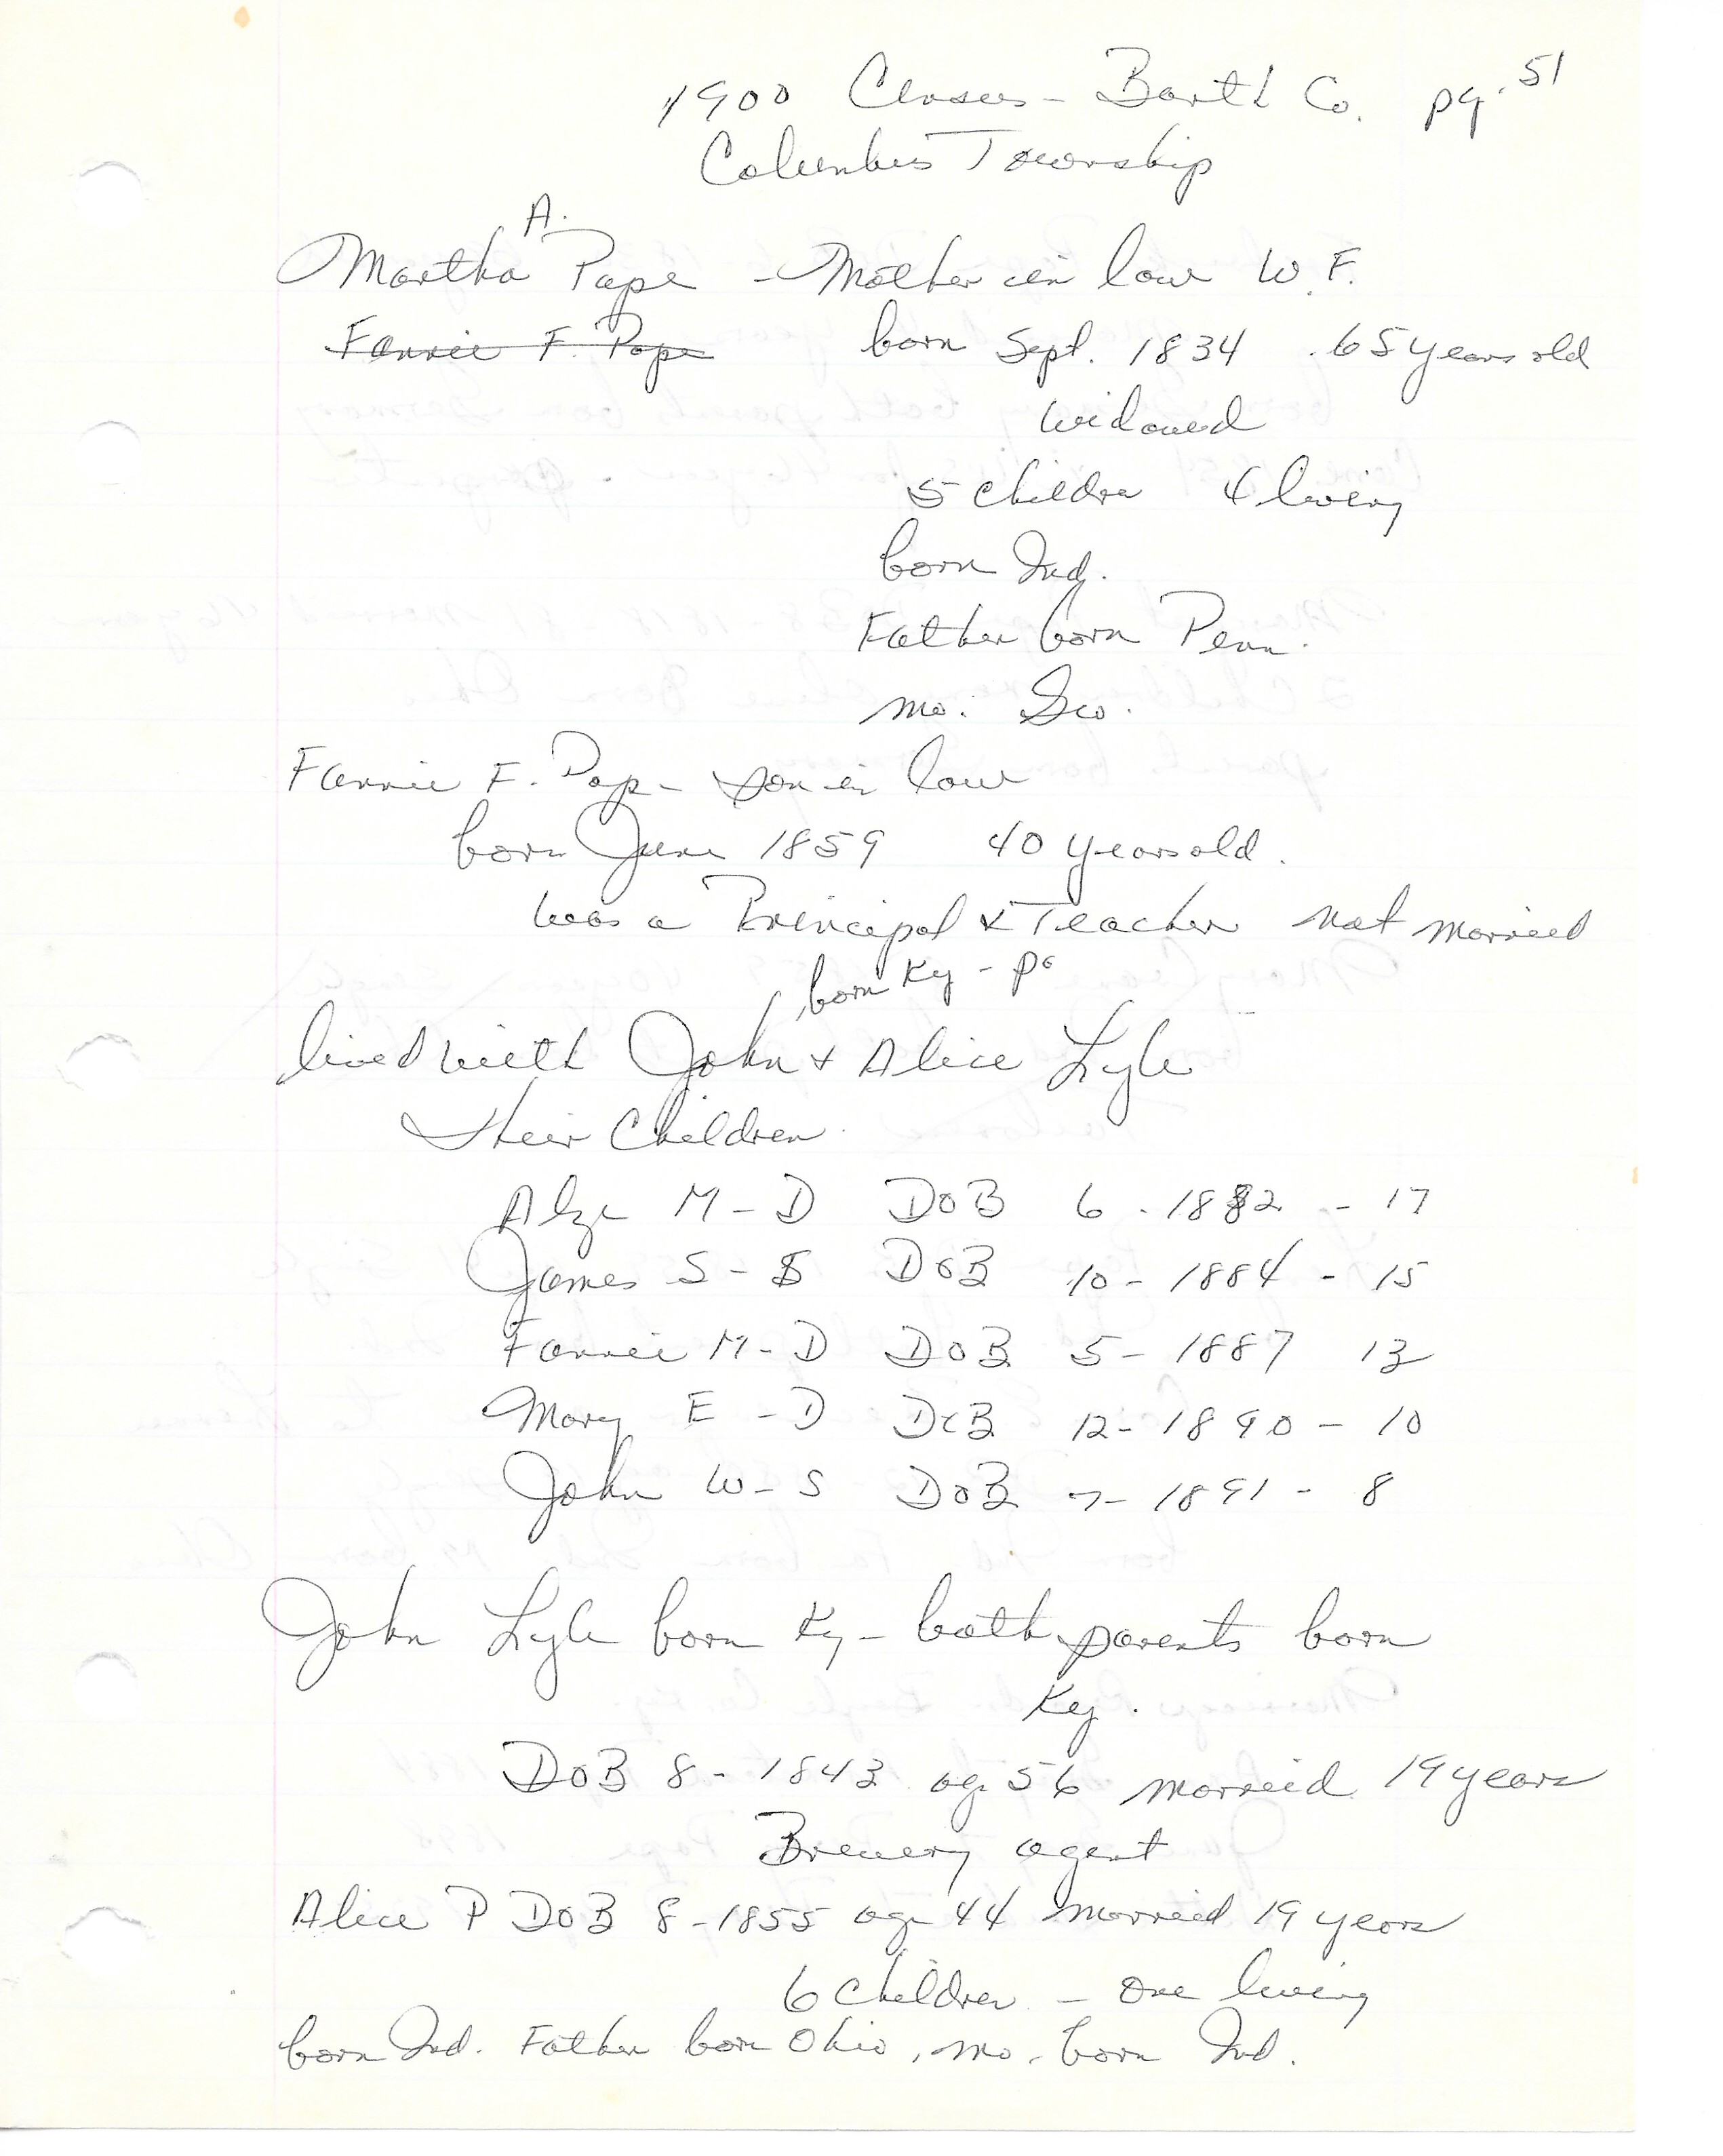 1900 Census - Barth Co. pg. 51
Columbus Township
A.
Martha Pape - Mother in law W. F.
Fannie F. Pape born Sept. 1834 . 65 years old
Widowed
5 Children 4 living
born Ind.
Father born Penn.
Mo. Geo.
Fannie F. Pap - son in law
born June 1859 40 years old.
was a Principal & Teacher not married
born Ky - Po
lived with John & Alice Lyle
their Children
Alge M - D DOB 6 - 1882 - 17
James S - S DOB 10 - 1884 - 15
Fannie M - D DOB 5 - 1887 13
Mary E - D DOB 12 - 1890 - 10
John W - S DOB 7 - 1891 - 8
John Lyle born Ky - both parents born
Ky.
DOB 8 - 1843 age 56 married 19 years
Brewery agent
Alice P DOB 8 - 1855 age 44 married 19 years
6 Children - one living
born Ind. Father born Ohio, Mo. born Ind.